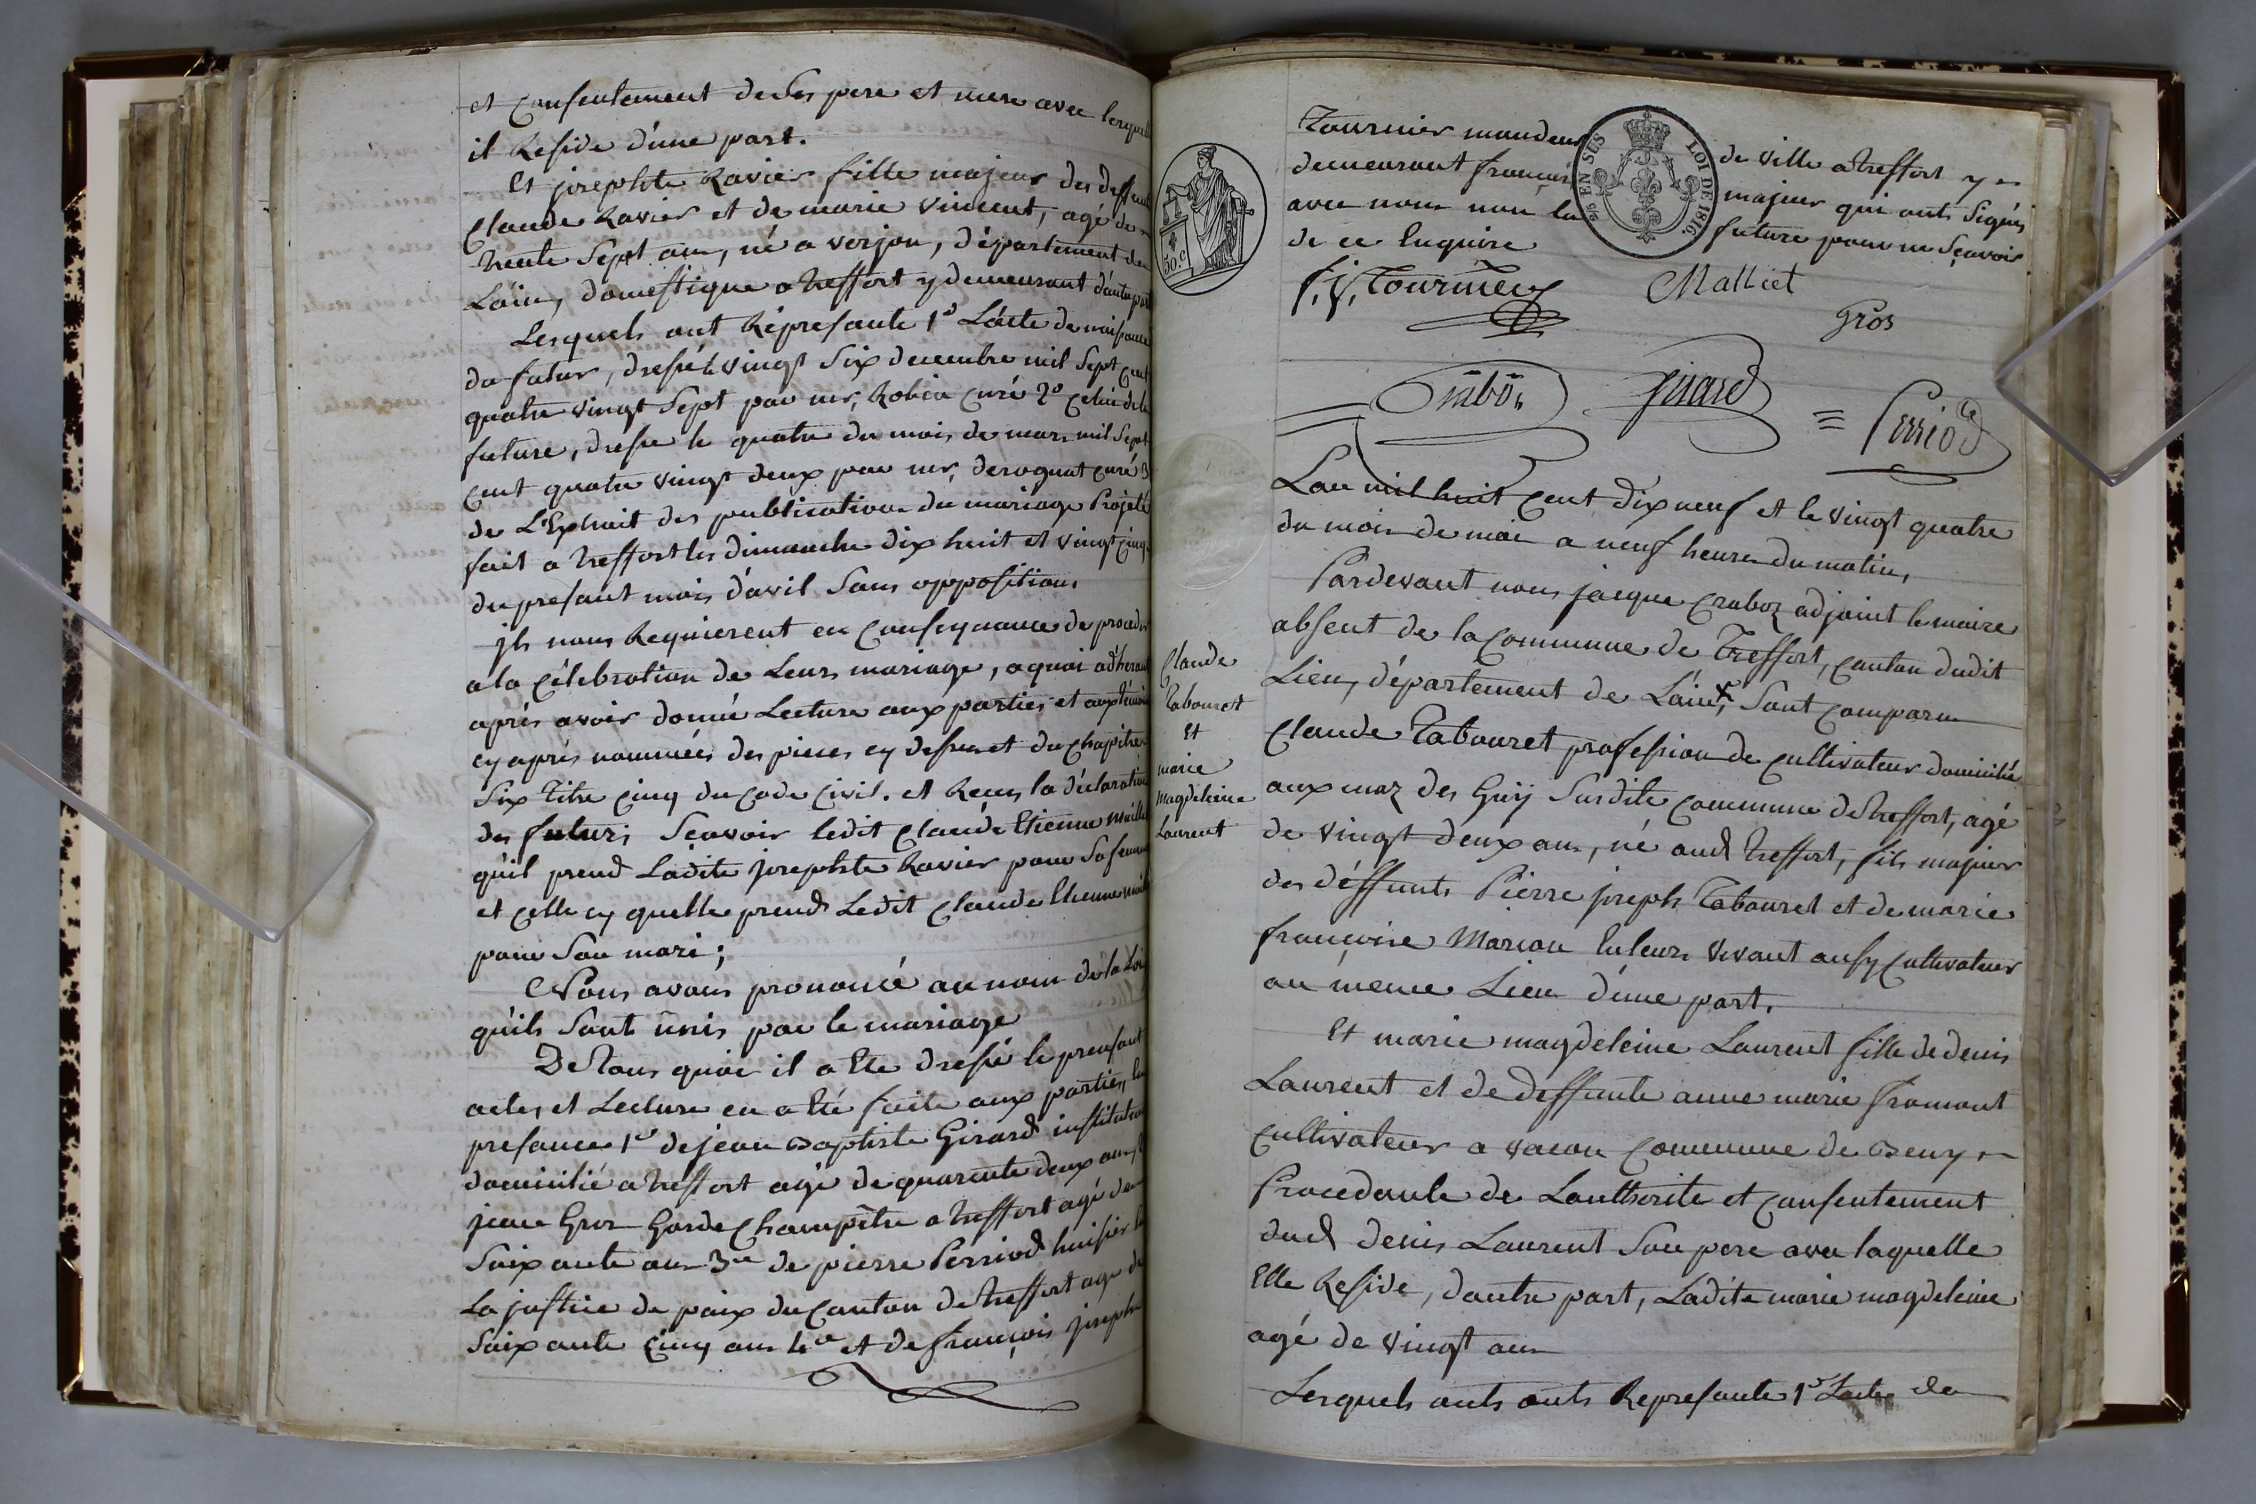 et consentement de ses pere et mere avec lesquels
il Reside d'une part.
Et josephte Ravier fille majeur des deffeunt
Claude Ravier et de marie vincent, agé de
trente sept ans, né a verjon, département de
L'ain, domestique a treffort y demeurant d'autre part
Lesquels ont Répresanté 1º L'acte de naissance
du futur, dressé le vingt Six decembre mil Sept cent
quatre vingt Sept par mr. Robin curé 2º celui de la
future, dressé le quatre du mois de mars mil Sept
cent quatre vingt deux par mr. deroguat curé 3
de L'Extrait des publications du mariage Projeté
fait a treffort les dimanche dix huit et vingt cinq
du presant mois d'avril Sans opposition.
jls nous Requierent en consequance de proceder
a la célebration de Leurs mariage, a quoi adherant
aprés avoir donné Lecture aux parties et aux témoins
cy aprés nommées des pieces cy dessus et du chapitre
Six titre cinq du code civil. et Recus la déclaration
des futurs Sçavoir ledit Claude Etienne
qu'il prend Ladite josephte Ravier pour Sa femme
et celle cy quelle prend Ledit Claude Etienne
pour Son mari;
Nous avons prononcé au nom de la Loi
qu'ils Sont unis par le mariage
De Tous quoi il a Ete dressé le presant
acte, et Lecture en a Eté faite aux parties, En
presance 1º de jean Baptiste Girard instituteur
domicilié a treffort agé de quarante deux ans 2
jean Gros Garde Champêtre a treffort agé de
Soixante ans 3e de pierre Perriod huisier de
La justice de paix du canton de treffort agé de
Soixante cinq ans 4e et de françois joseph
Tournier de ville a treffort y
demeurant françois majeur qui onts Signés
avec nous non la future pour ne Sçavoir
de ce Enquire
LOI DE 1816.
95 EN SES
50.c
f. j. Tournier
Malliet
Gros
Crabôz
Girard
Perriod
Claude
Tabouret
Et
marie
Magdeleine
Laurent
L'an mil huit cent dix neuf et le vingt quatre
du mois de mai a neuf heures du matin,
Pardevant nous jacque Craboz adjoint le maire
absent de la commune de Treffort, canton dudit
Lieu, département de L'ain, Sont comparu
Claude Tabouret profession de cultivateur domicilié
aux maz des Guy Susdite commune de treffort, agé
de vingt deux ans, né aud treffort, fils majeur
des déffunts Pierre joseph Tabouret et de marie
françoise Marion En leurs vivant aussy cultivateur
au même Lieu d'une part.
Et marie magdeleine Laurent fille de denis
Laurent et de deffunte anne marie fromont
cultivateur a vacon commune de Beny
Procedante de L'authorite et consentement
dud denis Laurent Son pere avec laquelle
Elle Reside, d'autre part, Ladite marie magdeleine
agé de vingt ans
Lesquels onts onts Represanté 1º L'acte de